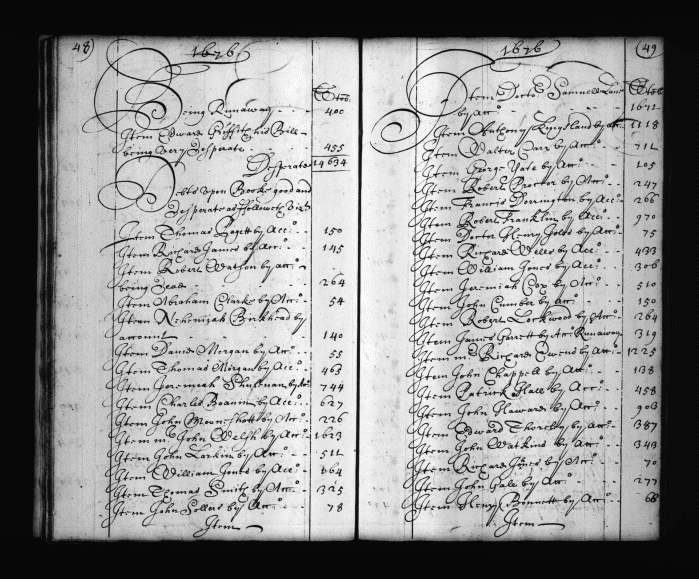 48
1676
lb Tob:
Being Runaway 400
Item Edward Griffith his Bill
being Very Desperate 455
Desperate 14634
Debts Upon Booke good and
Desperate as Followeth Vizt
Item Thomas by Acco: 150
Item Richard James by Acco: 145
Item Robert Watson by acco:
being Dead 264
Item Abraham Clarke by Acco: 54
Item Nehemiah Birkhead by
account 140
Item Daniel Morgan by Acco: 55
Item Thomas Morgan by Acco: 463
Item Jeremiah by Acco: 744
Item Charles by Acco: 627
Item John by Acco: 226
Item mr John Welsh by Acco: 1623
Item John Larkin by Acco: 511
Item William Jones by Acco: 164
Item Thomas Smith by Acco: 325
Item John Sollers by Acco: 78
Item
1676
49
lb Tob:
Item Doctor Samuell Lane
by Acco: 1671
Item Anthony Kingsland by acco: 1118
Item Walter Carr by Acco: 711
Item George Yate by Acco: 105
Item Robert Proctor by Acco: 247
Item Francis Dorington by Acco: 266
Item Robert Franklin by Acco: 970
Item Doctor Henry by Acco: 75
Item Richard Wells by Acco: 433
Item William Jones by Acco: 306
Item Jeremiah Cox by Acco: 510
Item John Cumber by acco: 150
Item Robert Lockwood by Acco: 264
Item James Garrett by Acco: Runaway 319
Item mr Richard Owens by Acco: 1225
Item John Chappell by Acco: 138
Item Patrick Hall by Acco: 458
Item John Haward by Acco: 903
Item Edward by Acco: 387
Item John Watkins by Acco: 343
Item Richard Jones by Acco: 70
Item John Gale by Acco: 277
Item Henry Bonnett by Acco: 68
Item